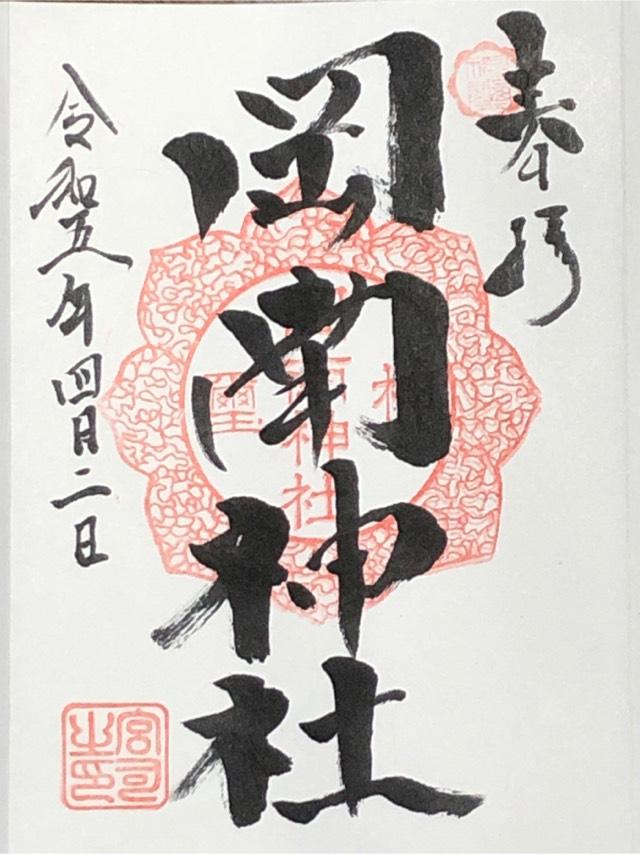 奉拝
岡南神社
令和五年四月二日
神社
璽
宮司之印